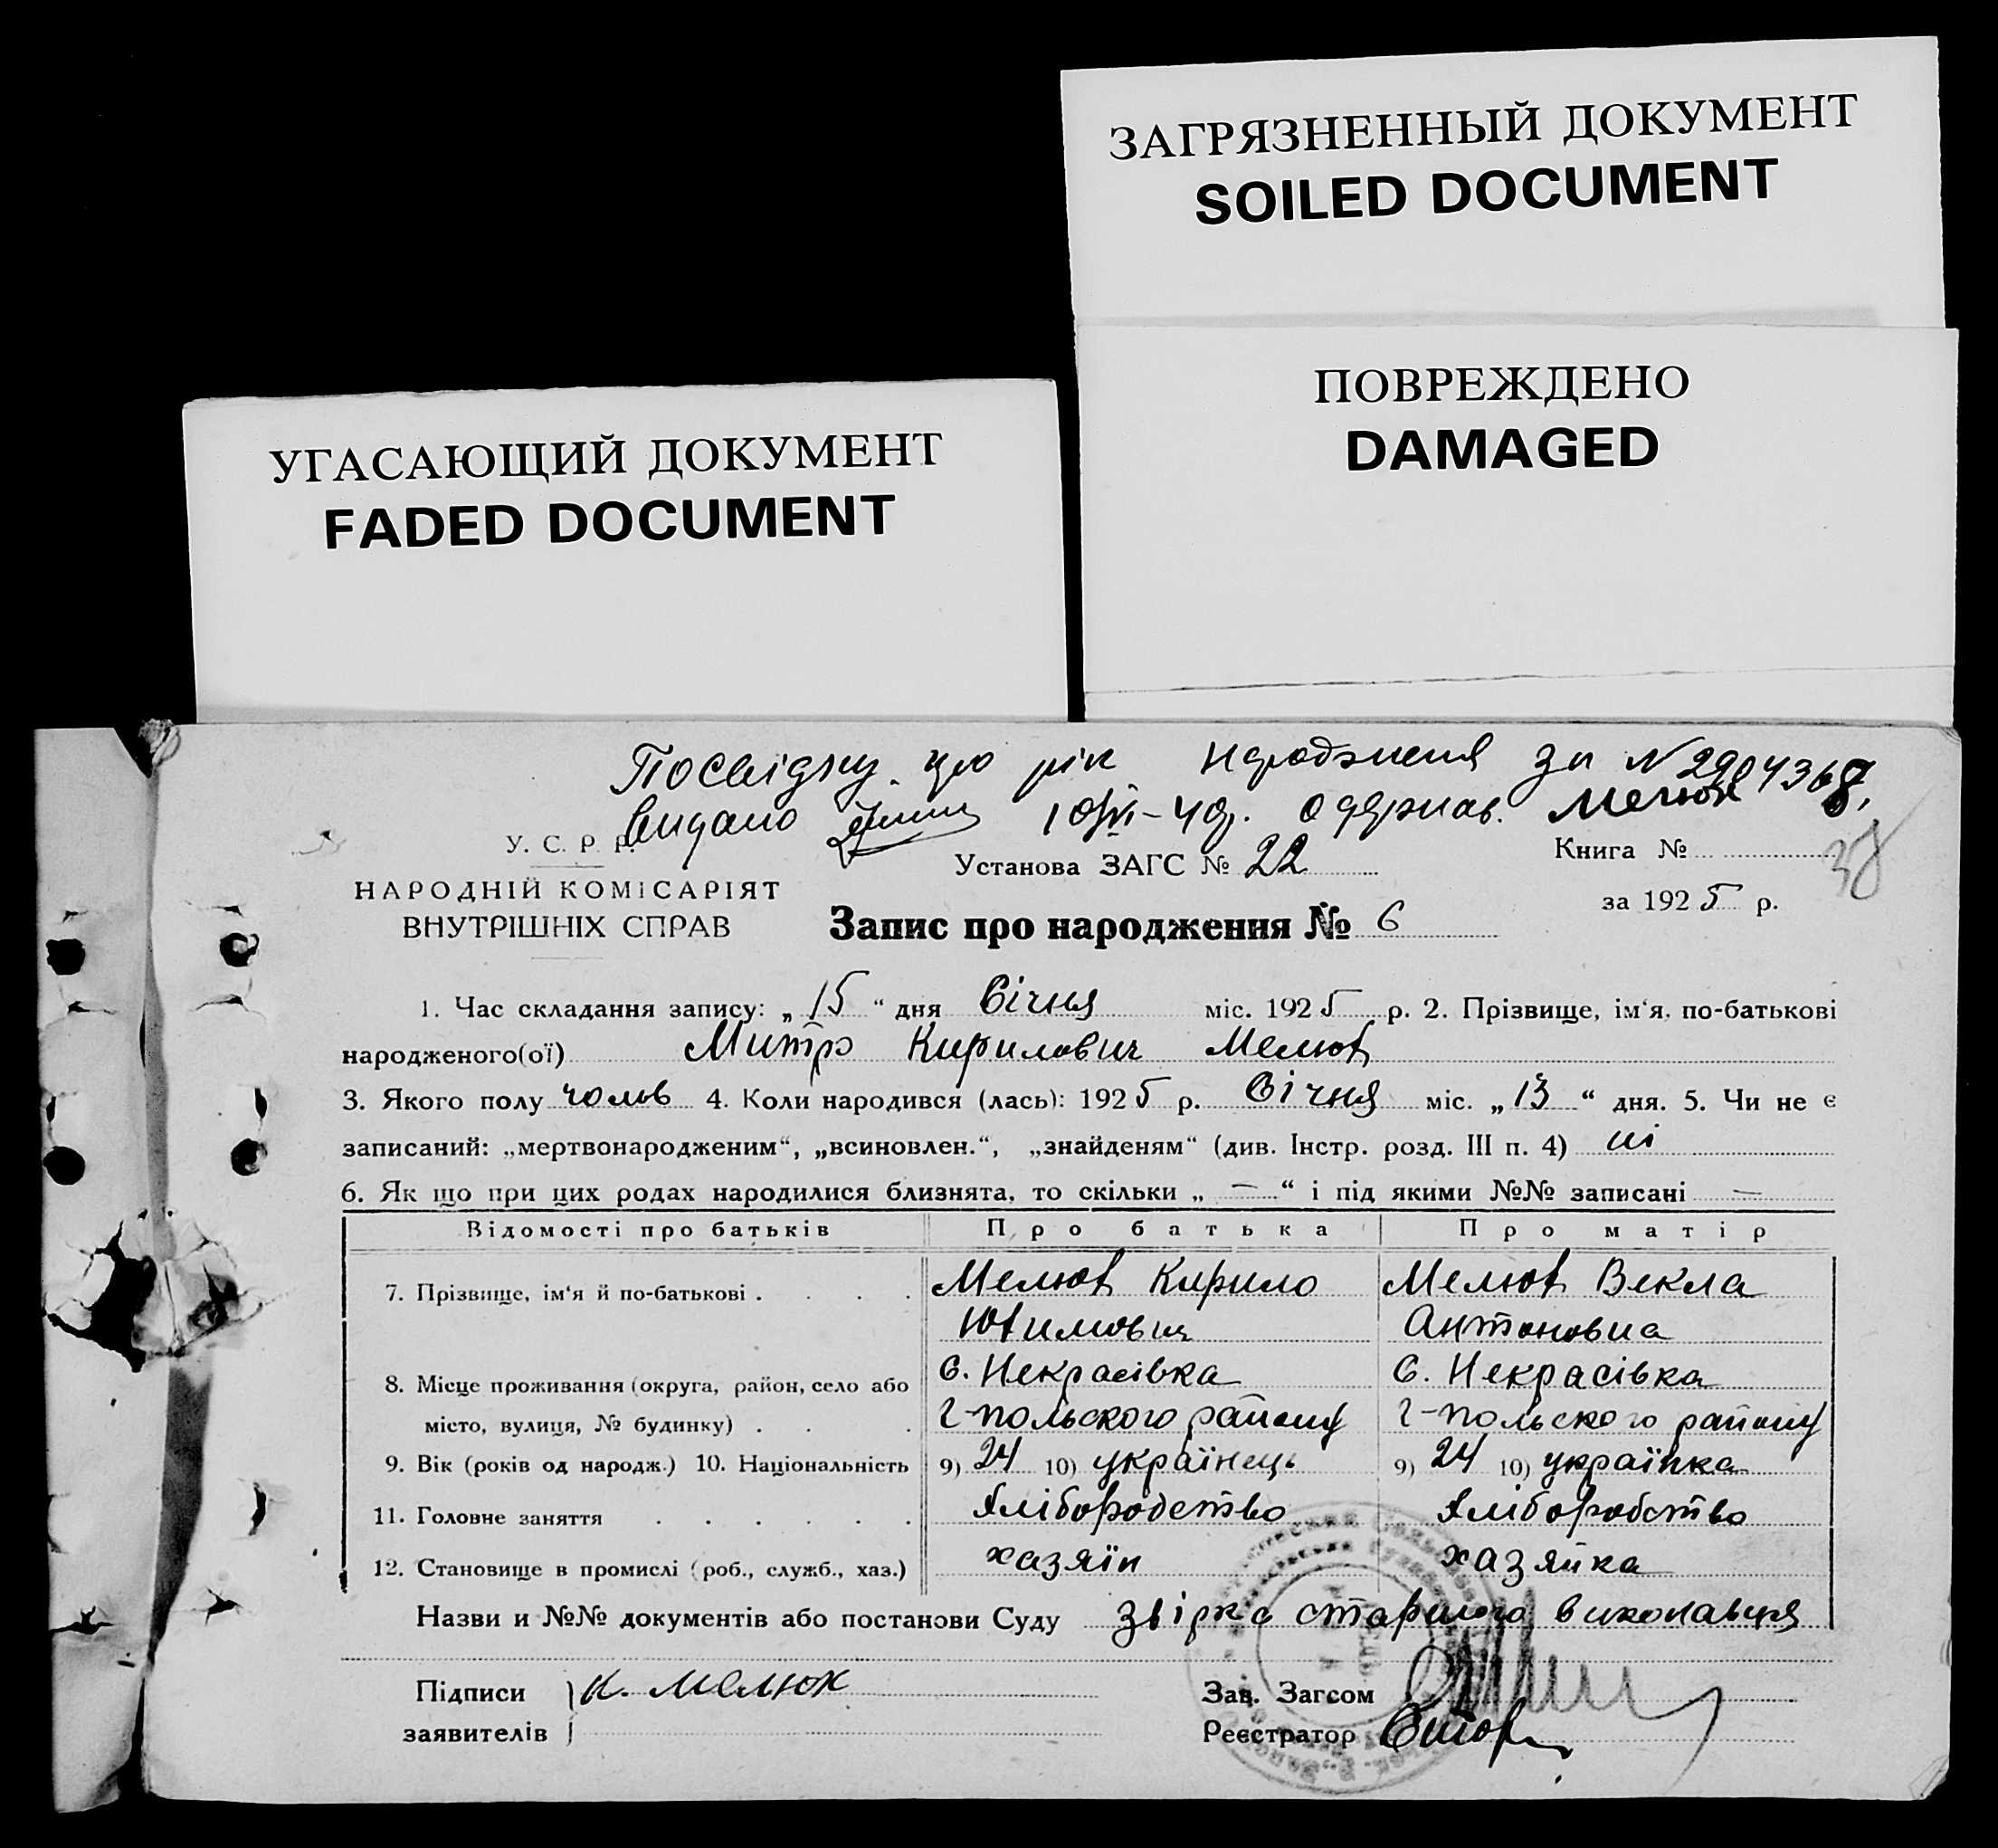 ЗАГРЯЗНЕННЫЙ ДОКУМЕНТ
SOILED DOCUMENT
ПОВРЕЖДЕНО
DAMAGED
УГАСАЮЩИЙ ДОКУМЕНТ
FADED DOCUMENT
Посвідку про рік народження за №
видано одержав. Мелюх
У. С. Р. Р.
НАРОДНІЙ КОМІСАРІЯТ
ВНУТРІШНІХ СПРАВ
Установа ЗАГС № 22
Книга №
38
за 1925 р.
Запис про народження № 6
1. Час складання запису: „ 15 “ дня Січня міс. 1925 р. 2. Прізвище, ім‘я, по-батькові
народженого(ої) Митро Кирилович Мелюх
3. Якого полу чолов 4. Коли народився (лась): 1925 р. Січня міс. „ 13 “ дня. 5. Чи не є
записаний: „мертвонародженим“, „всиновлен.“, „знайденям“ (див. Інстр. розд. III п. 4) ні
6. Як що при цих родах народилися близнята, то скільки „ — “ і під якими №№ записані —
Відомості про батьків Про батька Про матір
7. Прізвище, ім‘я й по-батькові . . . . Мелюх Кирило Мелюх Векла
Юхимович Антоновна
8. Місце проживання (округа, район, село або С. Некрасівка С. Некрасівка
місто, вулиця, № будинку) . . . г-польского району г-польского району
9. Вік (років од народж.) 10. Національність 9) 24 10) українець 9) 24 10) українка
11. Головне заняття . . . . . . Хліборобство Хліборобство
12. Становище в промислі (роб., служб., хаз.) хазяїн хазяйка
Назви и №№ документів або постанови Суду звірка старшого виконавця
Підписи К. Мелюх
заявителів
Зав. Загсом
Реєстратор